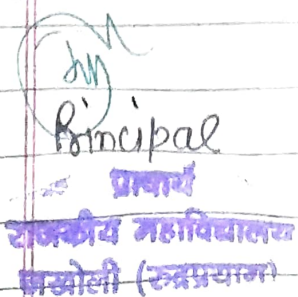 Principal
प्राचार्य
राजकीय महाविद्यालय
जखोली (रुद्रप्रयाग)